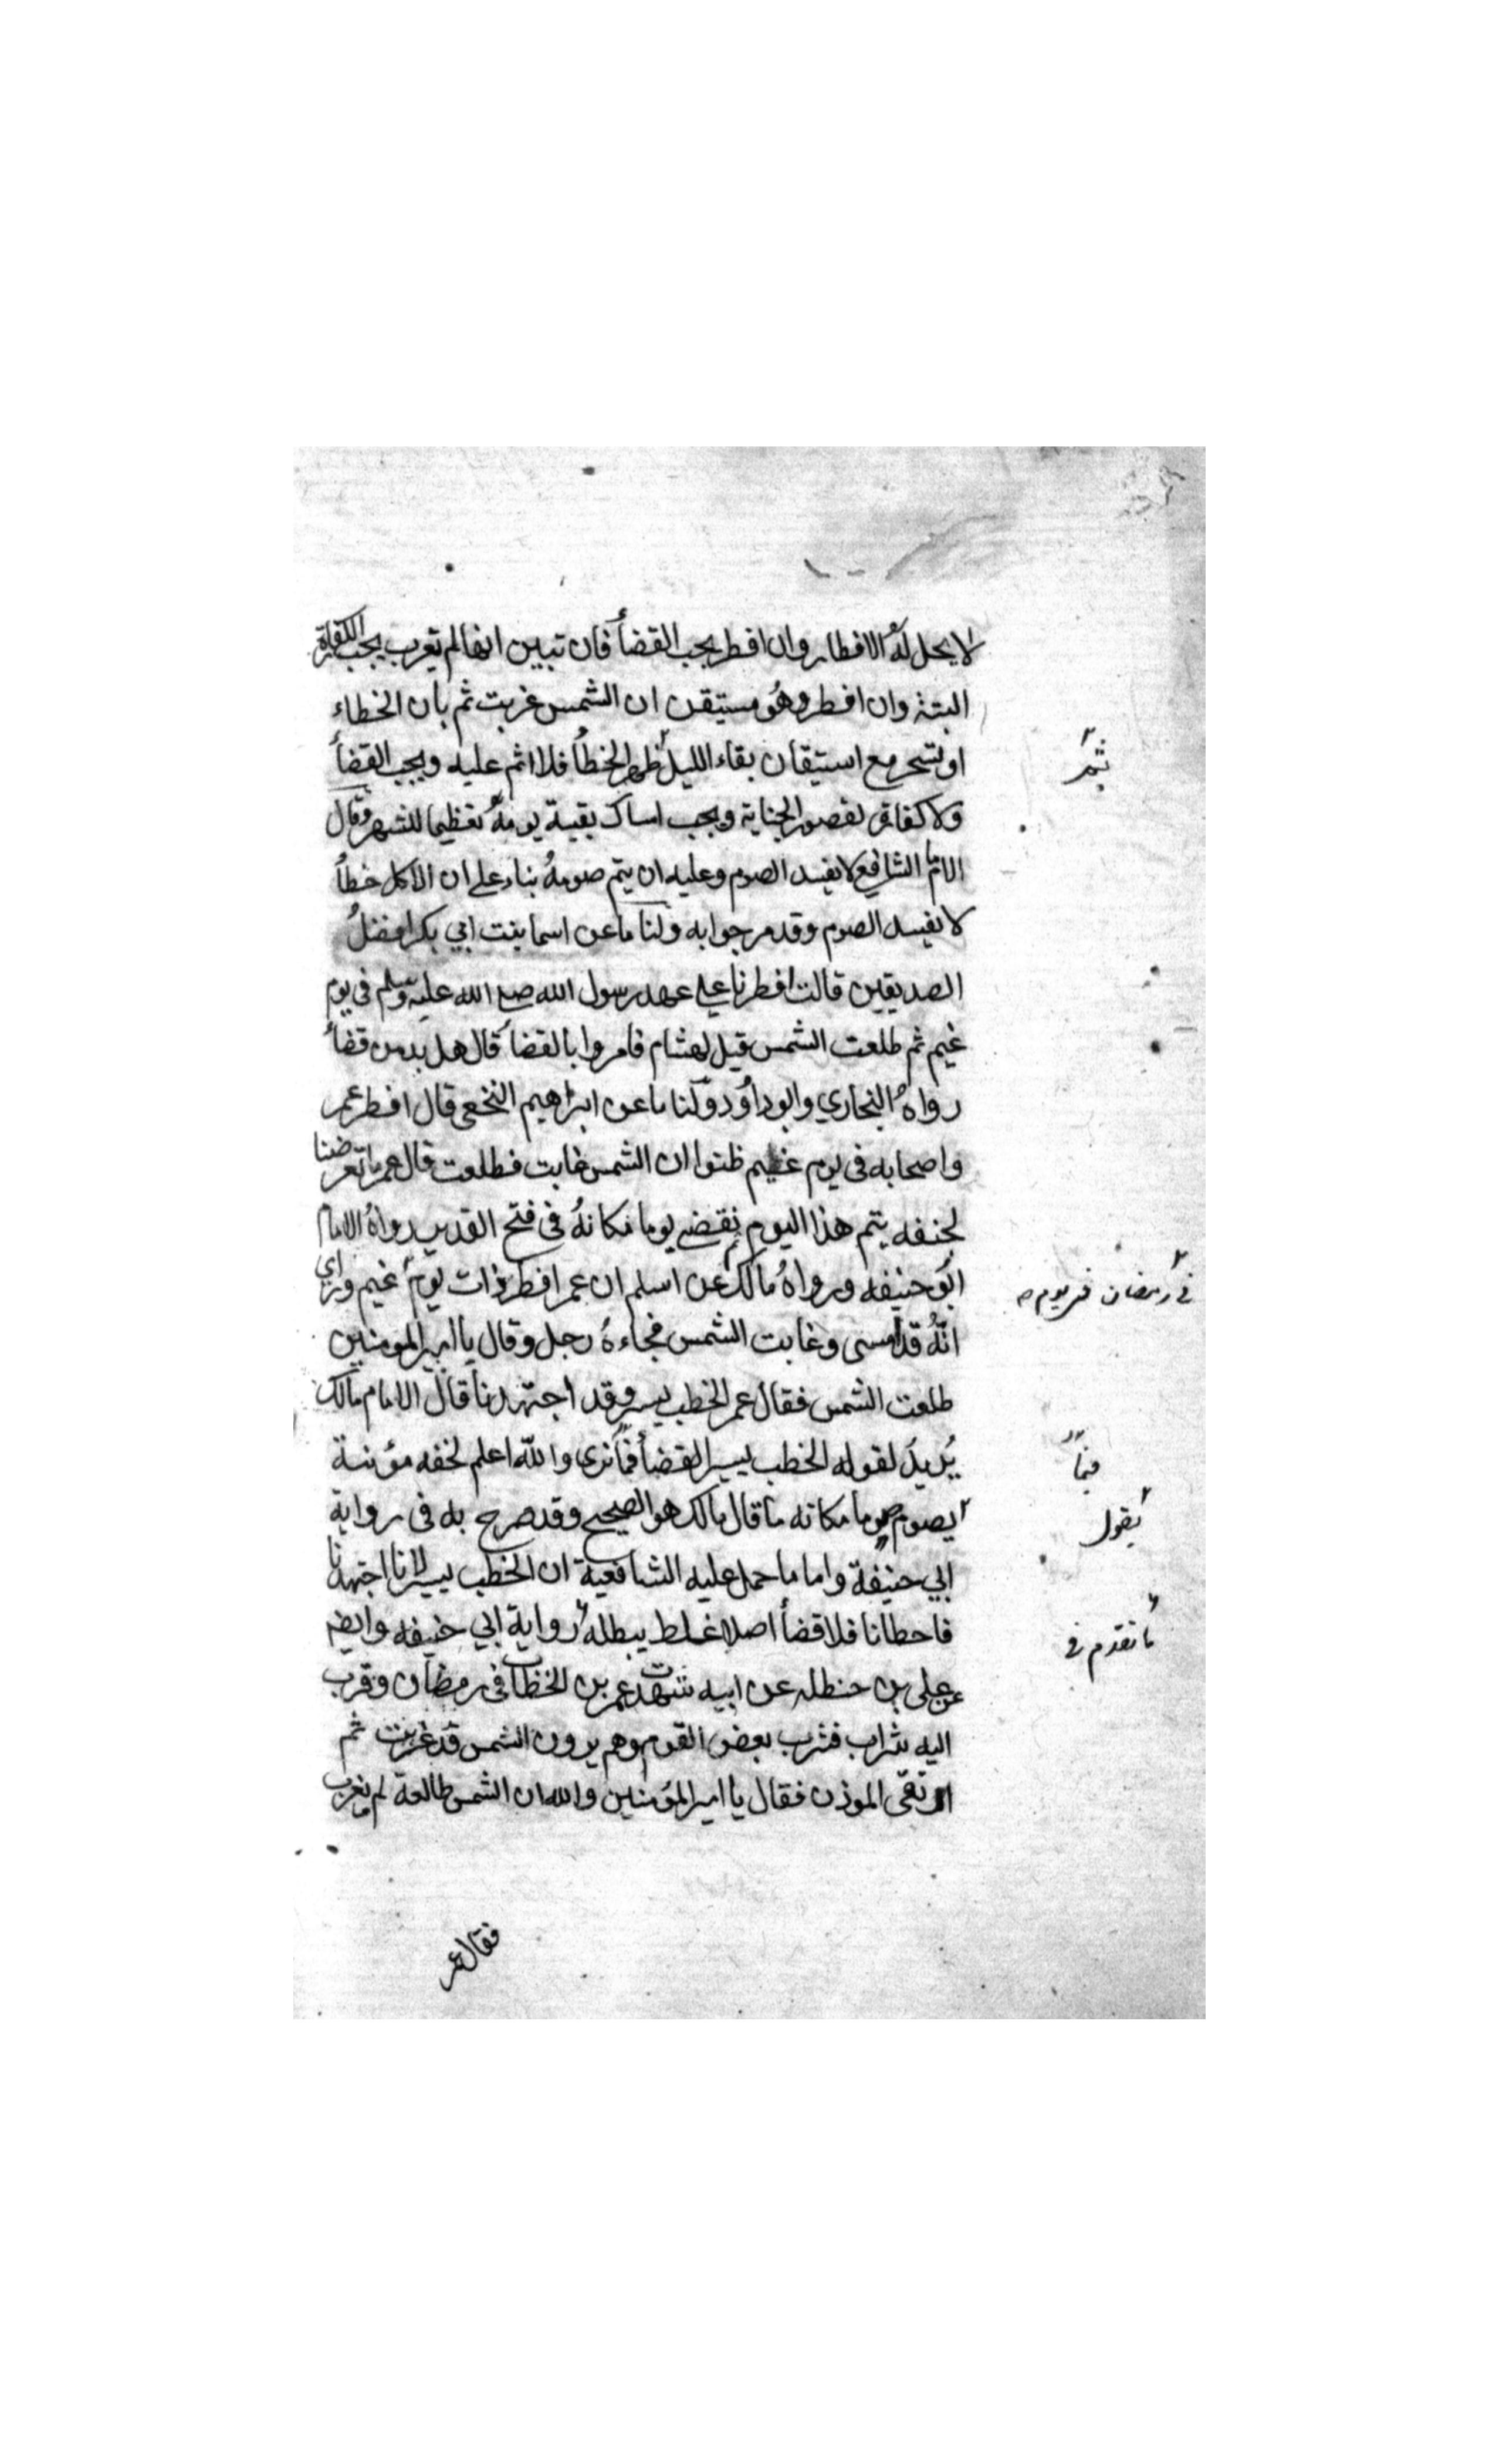 لا يحل له الافطار وان افطر يجب القضأ فان تبين انها لم تغرب يجب الكفارة
البتة وان افطر وهو مستيقن ان الشمس غربت ثم بان الخطاء
او تسحر مع استيقان بقاء الليل ظهر الخطأ فلا اثم عليه ويجب القضأ
ثم
ولا كفارة لقصور الجناية ويجب امساك بقية يومه تعظيما للشهر وقال
الامام الشافعي لا يفسد الصوم وعليه ان يتم صومه بناء على ان الاكل خطأ
لا يفسد الصوم وقد مر جوابه ولنا ما عن اسما بنت ابي بكر افضل
الصديقين قالت افطرنا على عهد رسول الله صلع الله عليه وسلم فى يوم
غيم ثم طلعت الشمس قيل لهشام فامروا بالقضأ قال هل بد من قضأ
رواه البخاري وابو داؤد ولنا ما عن ابراهيم النخعى قال افطر عمر
واصحابه فى يوم غيم ظنوا ان الشمس غابت فطلعت قال عمر ما تعرضنا
لجنفه يتم هذا اليوم ثم نقضي يوما مكانه فى فتح القدير رواه الامام
ابو حنيفه ورواه مالك عن اسلم ان عمر افطر ذات يوم غيم وراى
فى رمضان فى يوم
انه قد امسى وغابت الشمس فجاءه رجل وقال يا امير المومنين
طلعت الشمس فقال عمر الخطب يسير وقد اجتهدنا قال الامام مالك
يريد لقوله الخطب يسير القضأ فما نرى والله اعلم لخفه مؤنته
فيما
يصوم يوما مكانه ما قال مالك هو الصحيح وقد صرح به فى رواية
يقول
ابي حنيفة واما ما حمل عليه الشافعية ان الخطب يسير لانا اجتهدنا
فاخطانا فلا قضأ اصلا غلط يبطله رواية ابي حنيفه وايضا
ما تقدم فى
عن على بن حنظله عن ابيه شهدت عمر بن الخطاب فى رمضان وقرب
اليه شراب فشرب بعض القوم وهم يرون الشمس قد غربت ثم
ارتقى الموذن فقال يا امير المؤمنين والله ان الشمس طالعة لم تغرب
فقال عمر